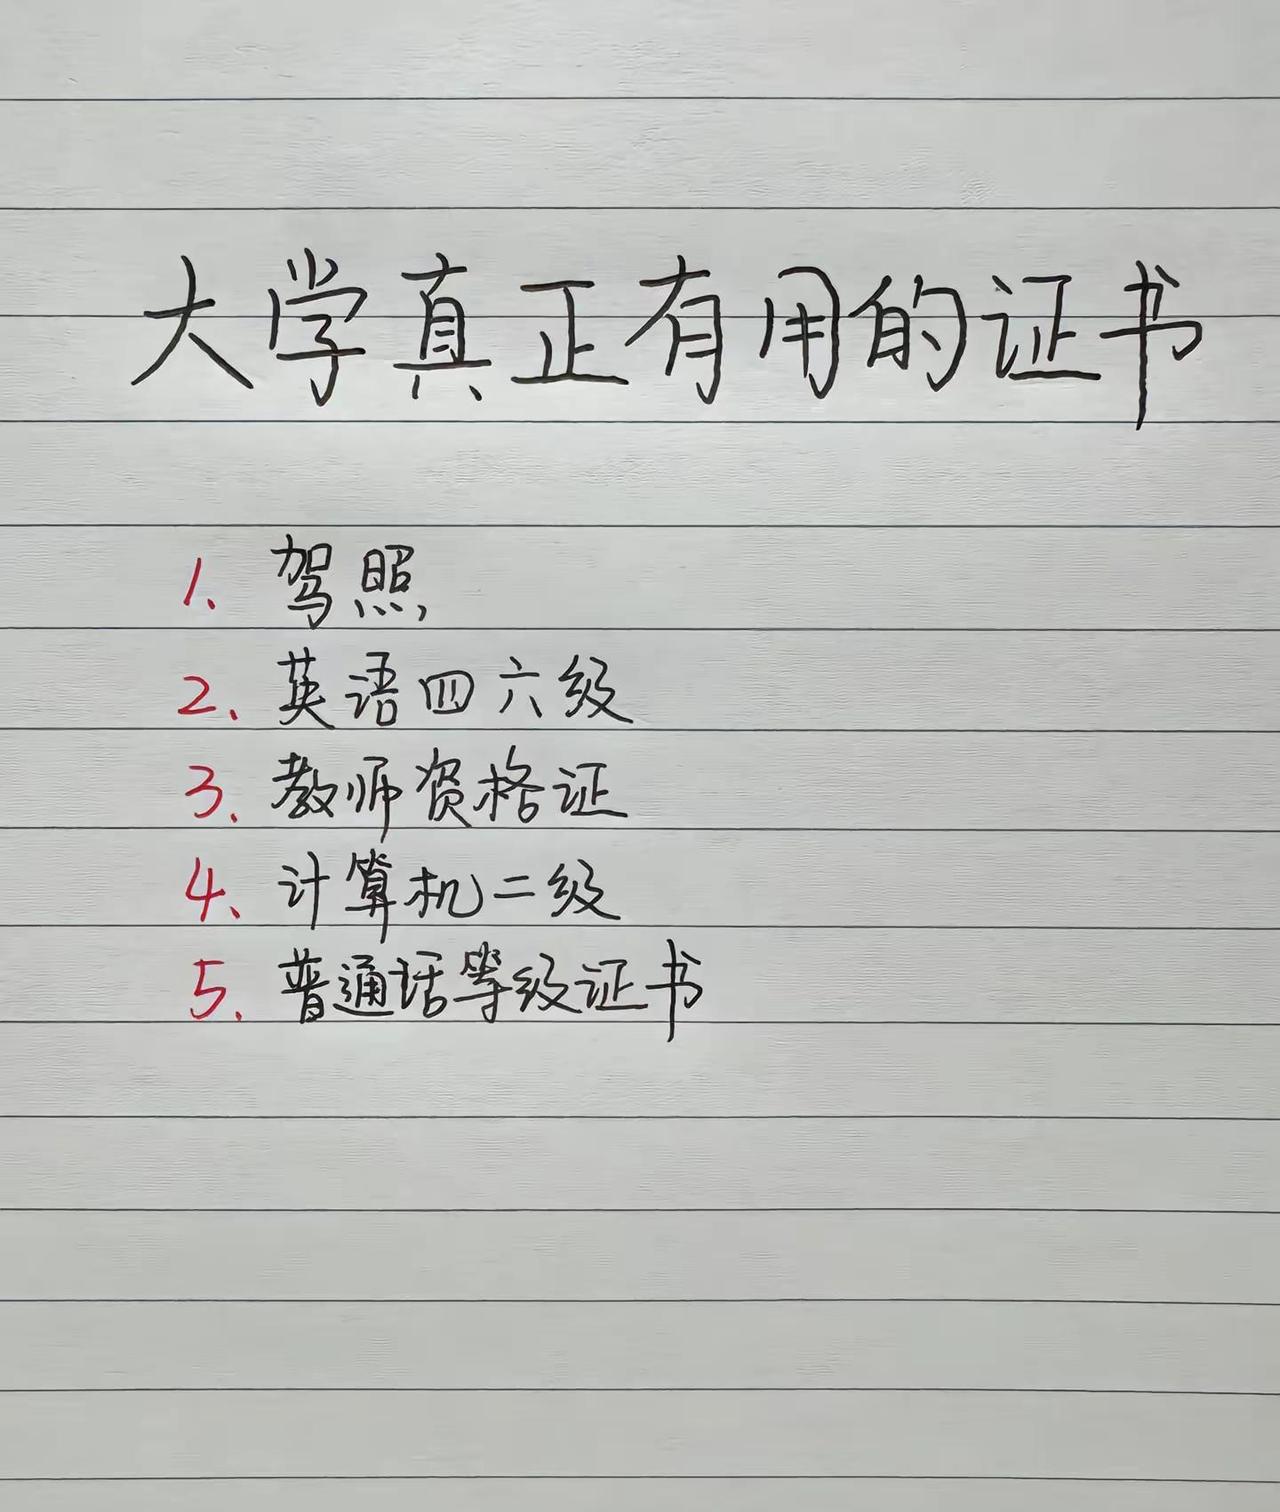 大学真正有用的证书
1、驾照
2、英语四六级
3、教师资格证
4、计算机二级
5、普通话等级证书